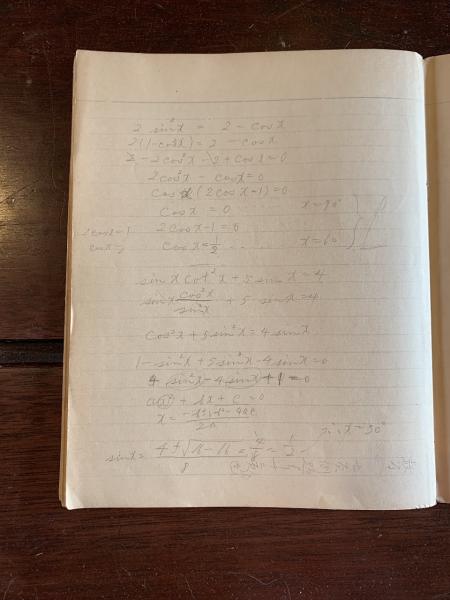 2 sin²x = 2 - cos x
2(1-cos²x) = 2 - cos x
2 - 2cos²x - 2 + cos x = 0
2cos²x - cos x = 0
cos x (2cos x - 1) = 0
cos x = 0 x = 90°
2cos x = 1 2cos x - 1 = 0
cos x = cos x = 1/2 x = 60°
sin x cot²x + 5 sin x = 4
sin x cos²x/sin²x + 5 sin x = 4
cos²x + 5 sin²x = 4 sin x
1 - sin²x + 5 sin²x - 4 sin x = 0
4 sin²x - 4 sin x + 1 = 0
ax² + bx + c = 0
x = -b±√b²-4ac / 2a
∴ x = 30°
sin x = 4±√16-16 / 8 = 4/8 = 1/2